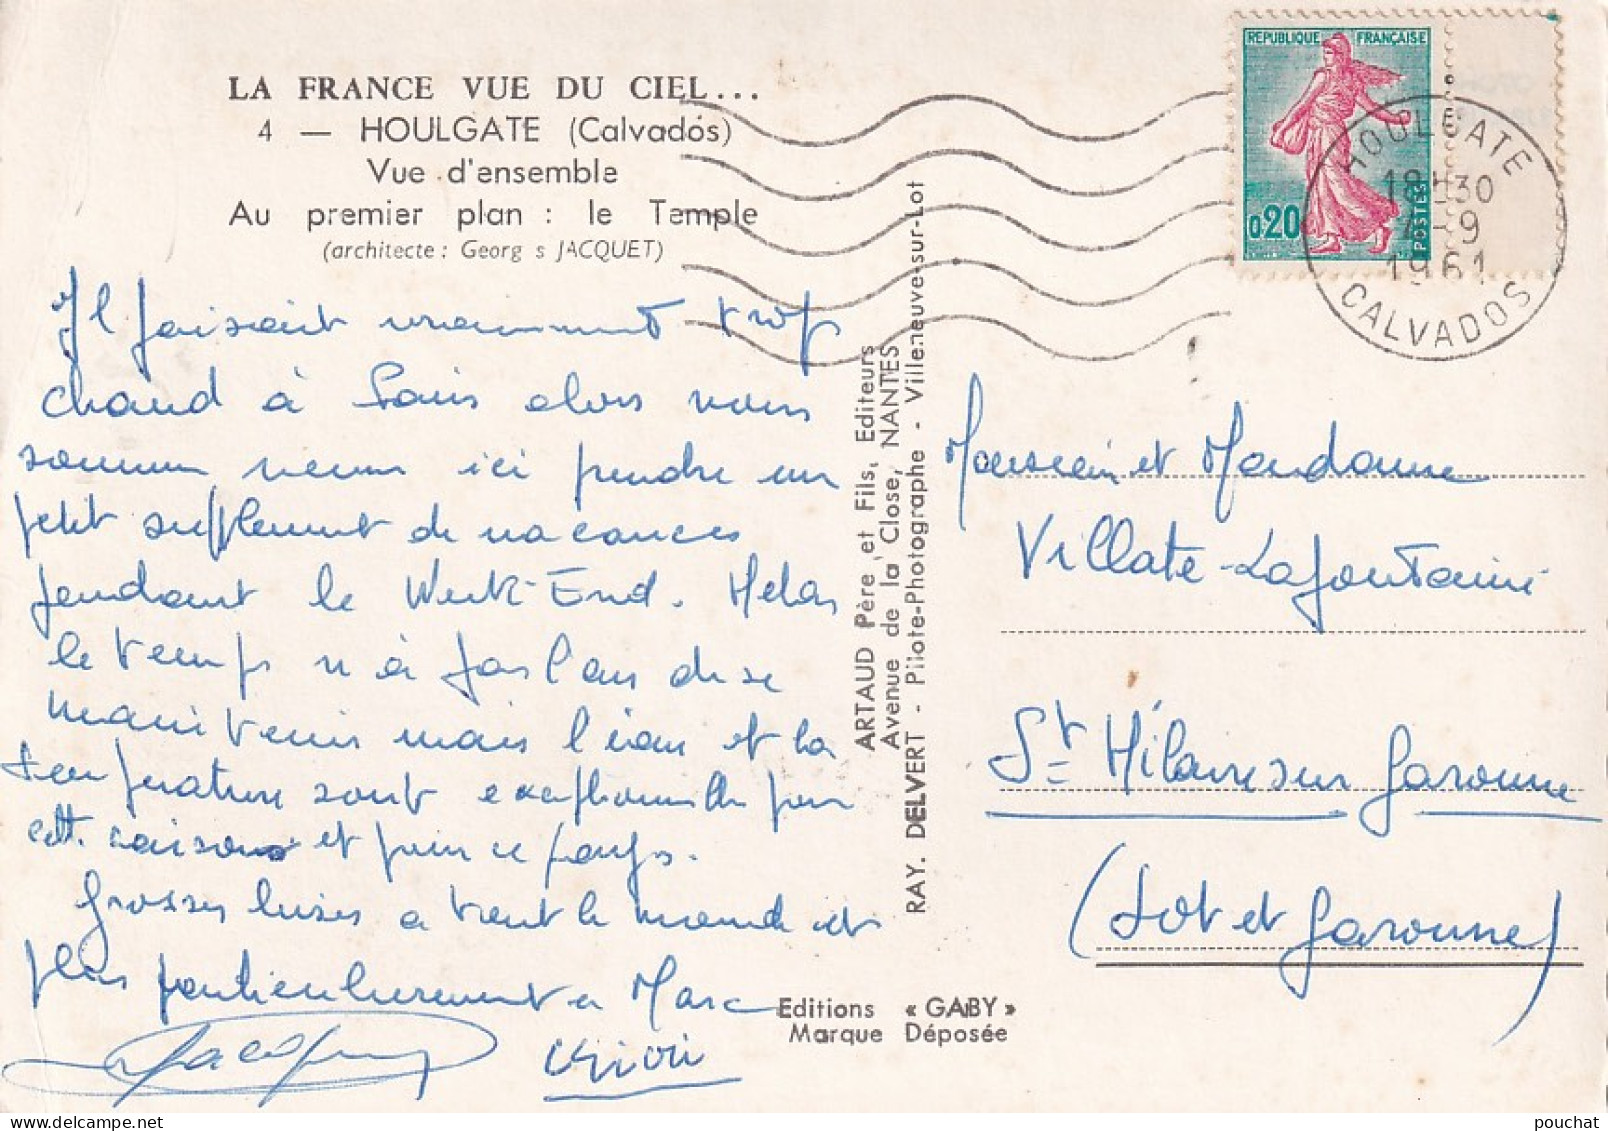 LA FRANCE VUE DU CIEL...
4 — HOULGATE (Calvados)
Vue d'ensemble
Au premier plan : le Temple
(architecte : Georg s JACQUET)
Il faisait vraiment trop
chaud à Paris alors nous
sommes venus ici prendre un
petit supplément de vacances
pendant le Week-End. Helas
le temps n'a pas l'air de se
maintenir mais l'eau et la
température sont exceptionnelles pour
cette saison et pour ce pays.
Grosses bises a tout le monde et
plus particulièrement a Marc
ARTAUD Père et Fils, Editeurs
Avenue de la Close, NANTES
RAY. DELVERT - Pilote-Photographe - Villeneuve-sur-Lot
Editions « GABY »
Marque Déposée
REPUBLIQUE FRANÇAISE
0,20
POSTES
HOULGATE
18H30
4-9
1961
CALVADOS
Monsieur et Madame
Villate-Lafontaine
St Hilaire sur Garonne
(Lot et Garonne)
pouchat